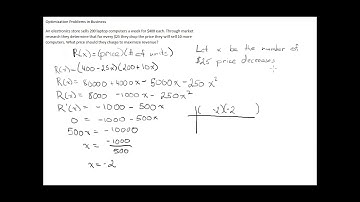 Optimization Problems in Business
An electronics store sells 200 laptop computers a week for $400 each. Through market
research they determine that for every $25 they drop the price they will sell 10 more
computers. What price should they charge to maximize revenue?
R(x) = (price)(# of units)
R(x) = (400-25x)(200+10x)
R(x) = 80000 + 4000x - 5000x - 250x²
R(x) = 8000 - 1000x - 250x²
R'(x) = -1000 - 500x
0 = -1000 - 500x
500x = -1000
x = -1000
500
x = -2
Let x be the number of
$25 price decreases
-2 -2